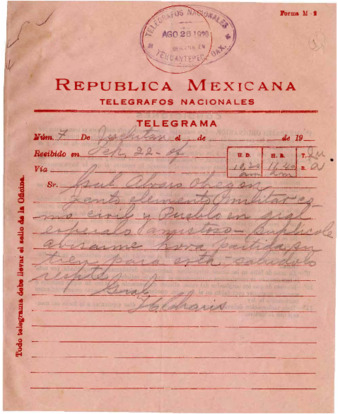 Forma M-8
TELEGRAFOS NACIONALES
AGO 20
TEHUANTEPEC, OAX.
REPUBLICA MEXICANA
TELEGRAFOS NACIONALES
TELEGRAMA
Núm. 7 De Juchitan el de de 19
Recibido en Teh 22-of H.D. H.R. T.
Vía
Sr. Gral Alvaro Obregon
tanto elemento militar co
mo civil y Pueblo en gral
espéralo ansioso- Suplícole
avisarme hora partida
tren para esta- salúdolo
respte
Gral
Todo telegrama debe llevar el sello de la Oficina.